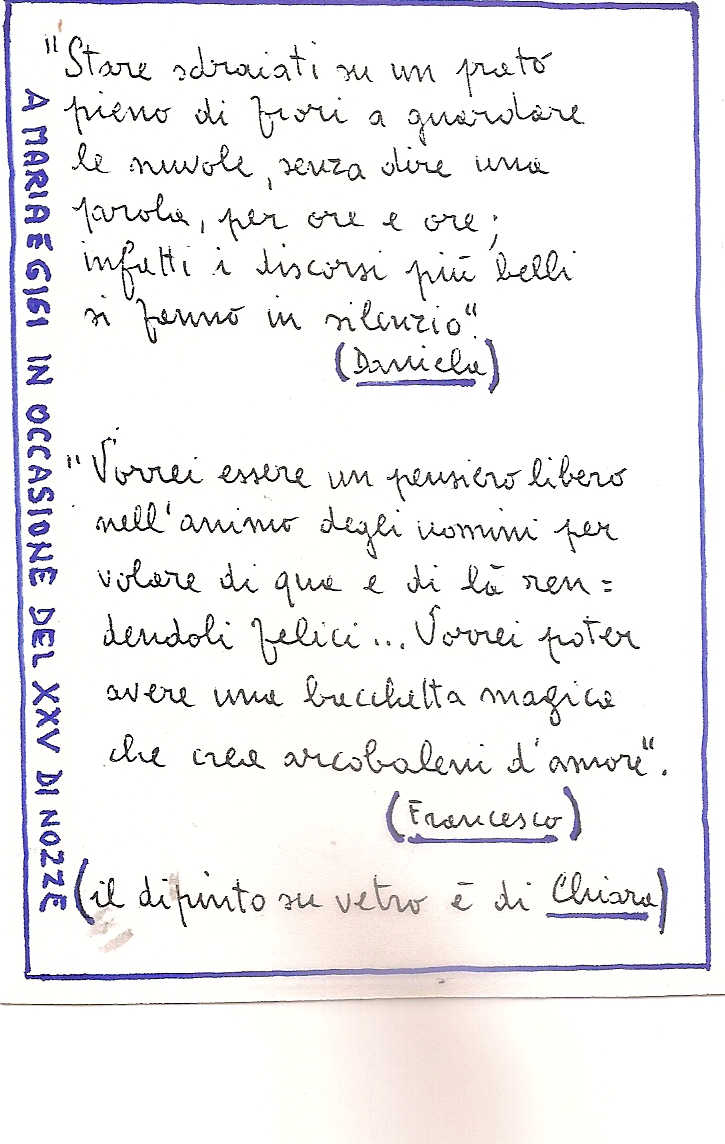 "Stare sdraiati su un prato
pieno di fiori a guardare
le nuvole, senza dire una
parola, per ore e ore;
infatti i discorsi più belli
si fanno in silenzio"
(Daniela)
"Vorrei essere un pensiero libero
nell'animo degli uomini per
volare di qua e di là ren=
dendoli felici... Vorrei poter
avere una bacchetta magica
che crea arcobaleni d'amore".
(Francesco)
(il dipinto su vetro è di Chiara)
A MARIA E GIGI IN OCCASIONE DEL XXV DI NOZZE